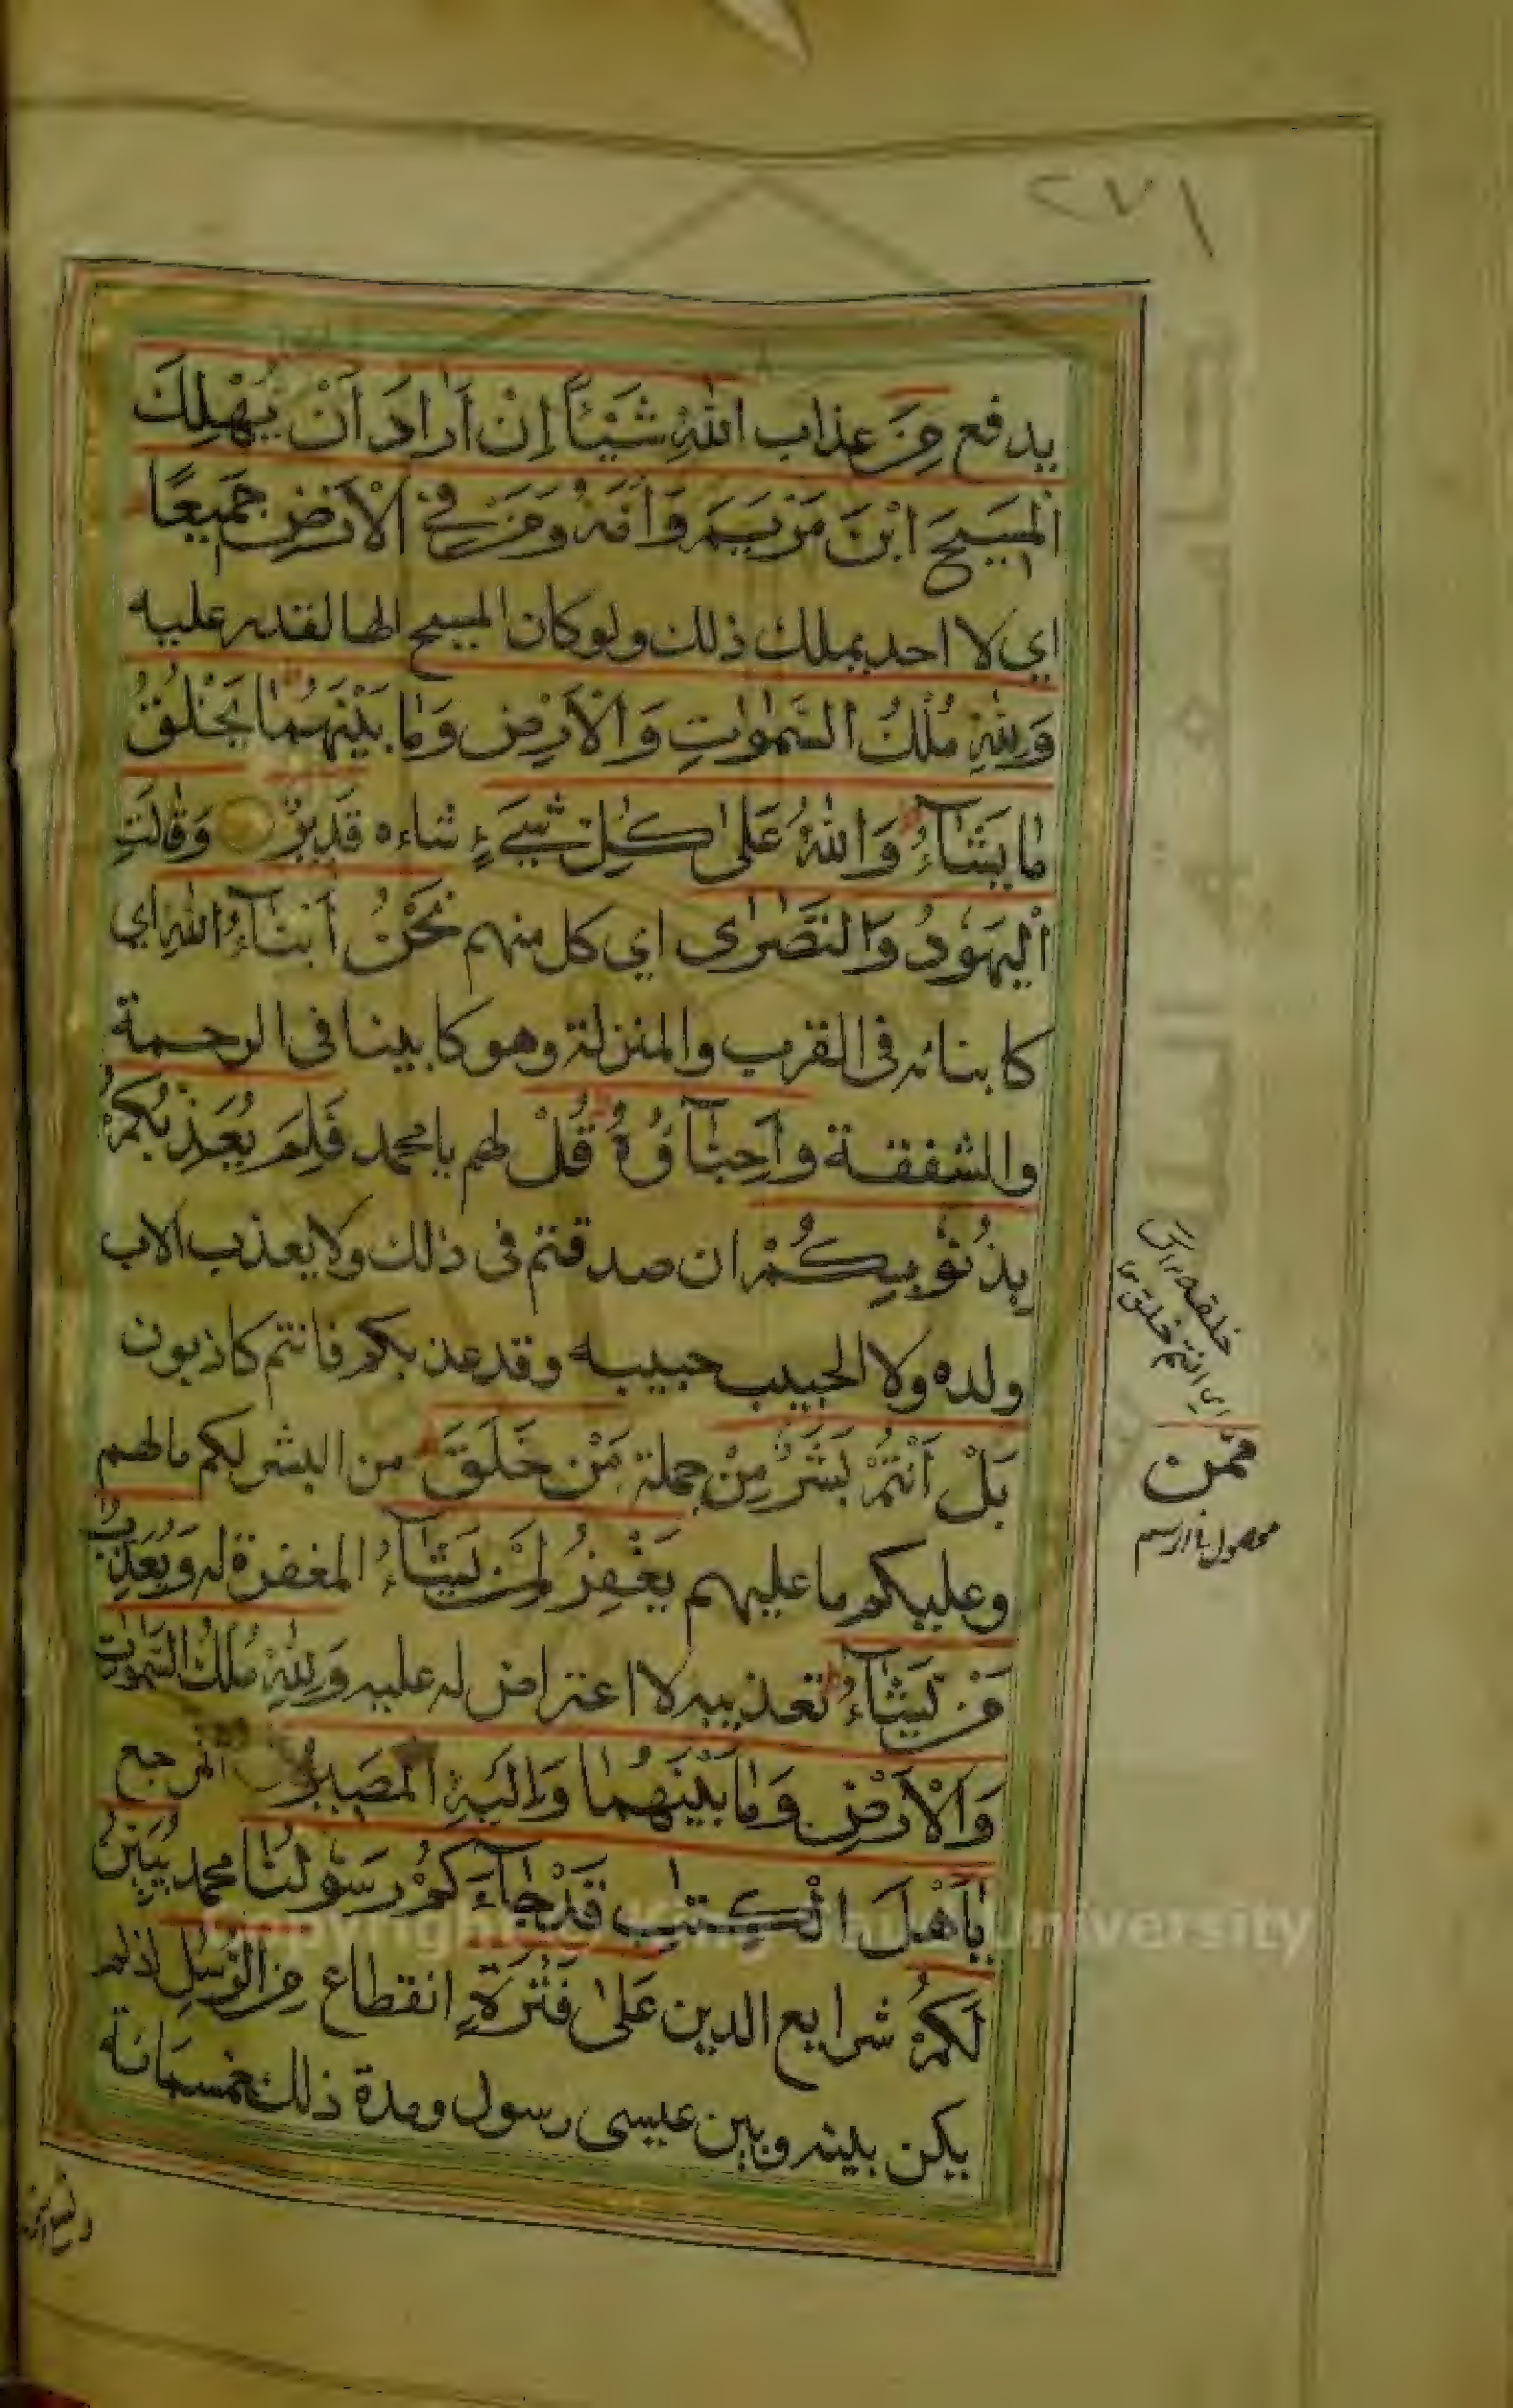 ٢٧١
يدفع مِنَ عذاب اللهِ شَيْئاً اِنْ اَرادَ اَنْ يُهْلِكَ
الْمَسيحَ ابْنَ مَرْيَمَ وَاُمَّهُ وَمَنْ فِي الْاَرْضِ جَميعًا
اي لا احد يملك ذلك ولو كان المسيح الها لقدر عليه
وَلِلّٰهِ مُلْكُ السَّمٰواتِ وَالْاَرْضِ وَمٰا بَيْنَهُمٰا يَخْلُقُ
مٰا يَشٰآءُ وَاللّٰهُ عَلىٰ كُلِّ شَيْءٍ شاءه قَديرٌ وَقٰالَتِ
الْيَهُودُ وَالنَّصٰارٰى اي كل منهم نَحْنُ اَبْنٰآءُ اللهِ اي
كابنائه في القرب والمنزلة وهو كابينا في الرحمة
والشفقة وَاَحِبّٰآؤُهُ قُلْ لهم يا محمد فَلِمَ يُعَذِّبُكُمْ
بِذُنُوبِكُمْ ان صدقتم في ذلك ولا يعذب الاب
ولده ولا الحبيب حبيبه وقد عذبكم فانتم كاذبون
بَلْ اَنْتُمْ بَشَرٌ مِنْ جملة مَنْ خَلَقَ من البشر لكم ما لهم
وعليكم ما عليهم يَغْفِرُ لِمَنْ يَشٰآءُ المغفرة له وَيُعَذِّبُ
مَنْ يَشٰآءُ تعذيبه لا اعتراض له عليه وَلِلّٰهِ مُلْكُ السَّمٰواتِ
وَالْاَرْضِ وَمٰا بَيْنَهُمٰا وَاِلَيْهِ الْمَصيرُ المرجع
يٰاَهْلَ الْكِتٰبِ قَدْ جٰآءَكُمْ رَسُولُنٰا محمد يُبَيِّنُ
لَكُمْ شرايع الدين عَلىٰ فَتْرَةٍ انقطاع مِنَ الرُّسُلِ اذ لم
يكن بينه وبين عيسى رسول ومدة ذلك خمسمائة
خلقه
اي انتم خلق من
ممن
Copyright © King Saud University